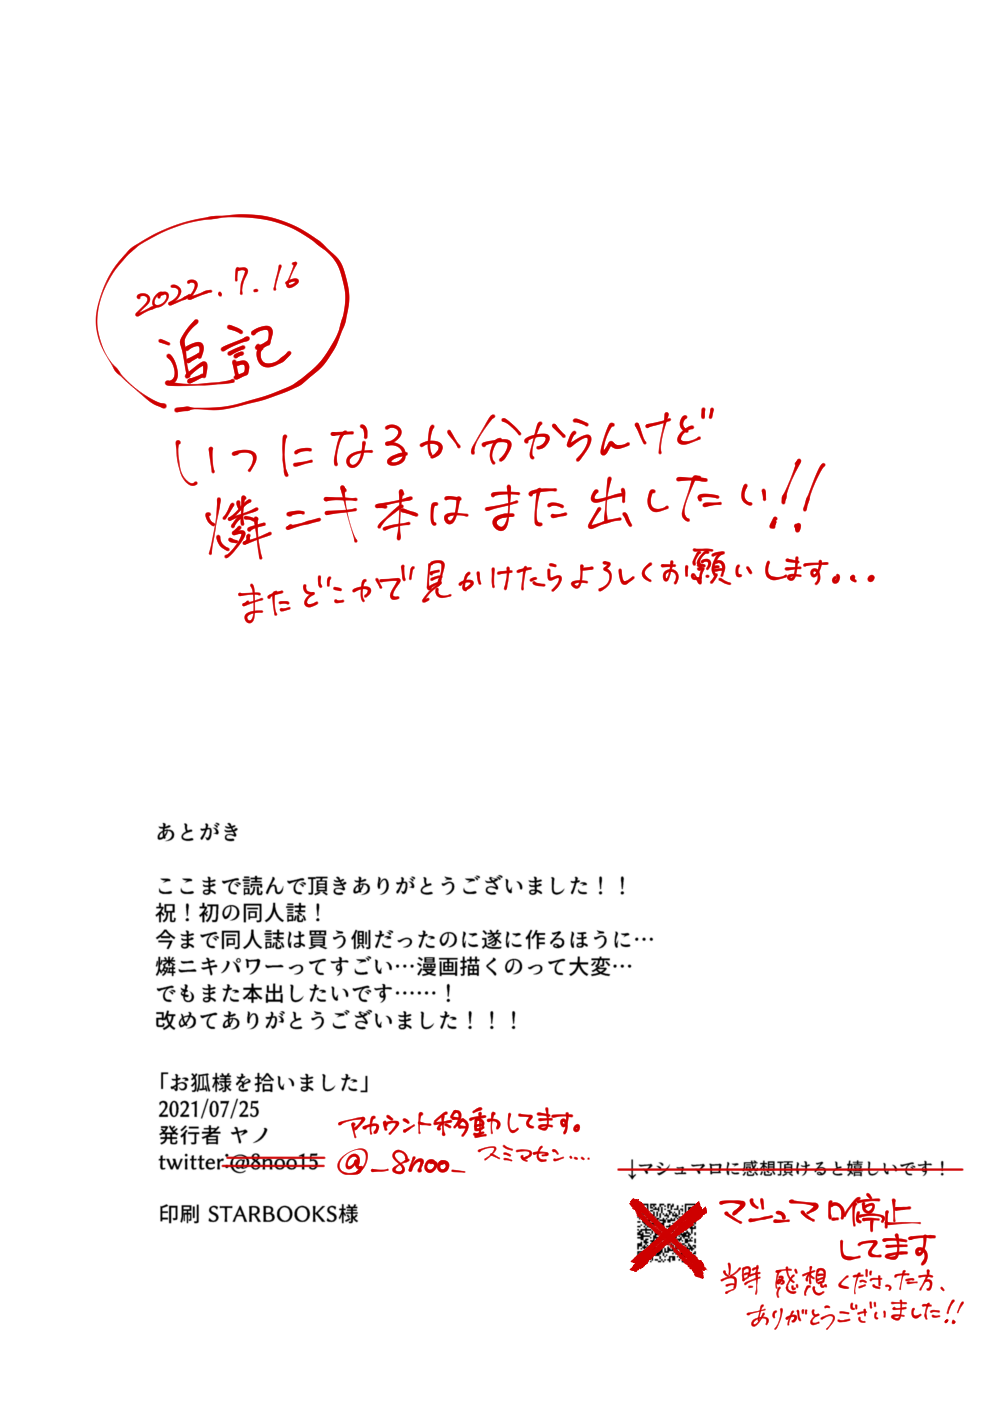 2022.7.16
追記
いつになるか分からんけど
燐ニキ本はまた出したい!!
またどこかで見かけたらよろしくお願いします...
あとがき
ここまで読んで頂きありがとうございました！！
祝！初の同人誌！
今まで同人誌は買う側だったのに遂に作るほうに…
燐ニキパワーってすごい…漫画描くのって大変…
でもまた本出したいです……！
改めてありがとうございました！！！
「お狐様を拾いました」
2021/07/25
発行者 ヤノ
twitter:@8noo15
アカウント移動してます。
@_8noo_ スミマセン....
印刷 STARBOOKS様
↓マシュマロに感想頂けると嬉しいです！
マシュマロ停止
してます
当時感想くださった方、
ありがとうございました!!